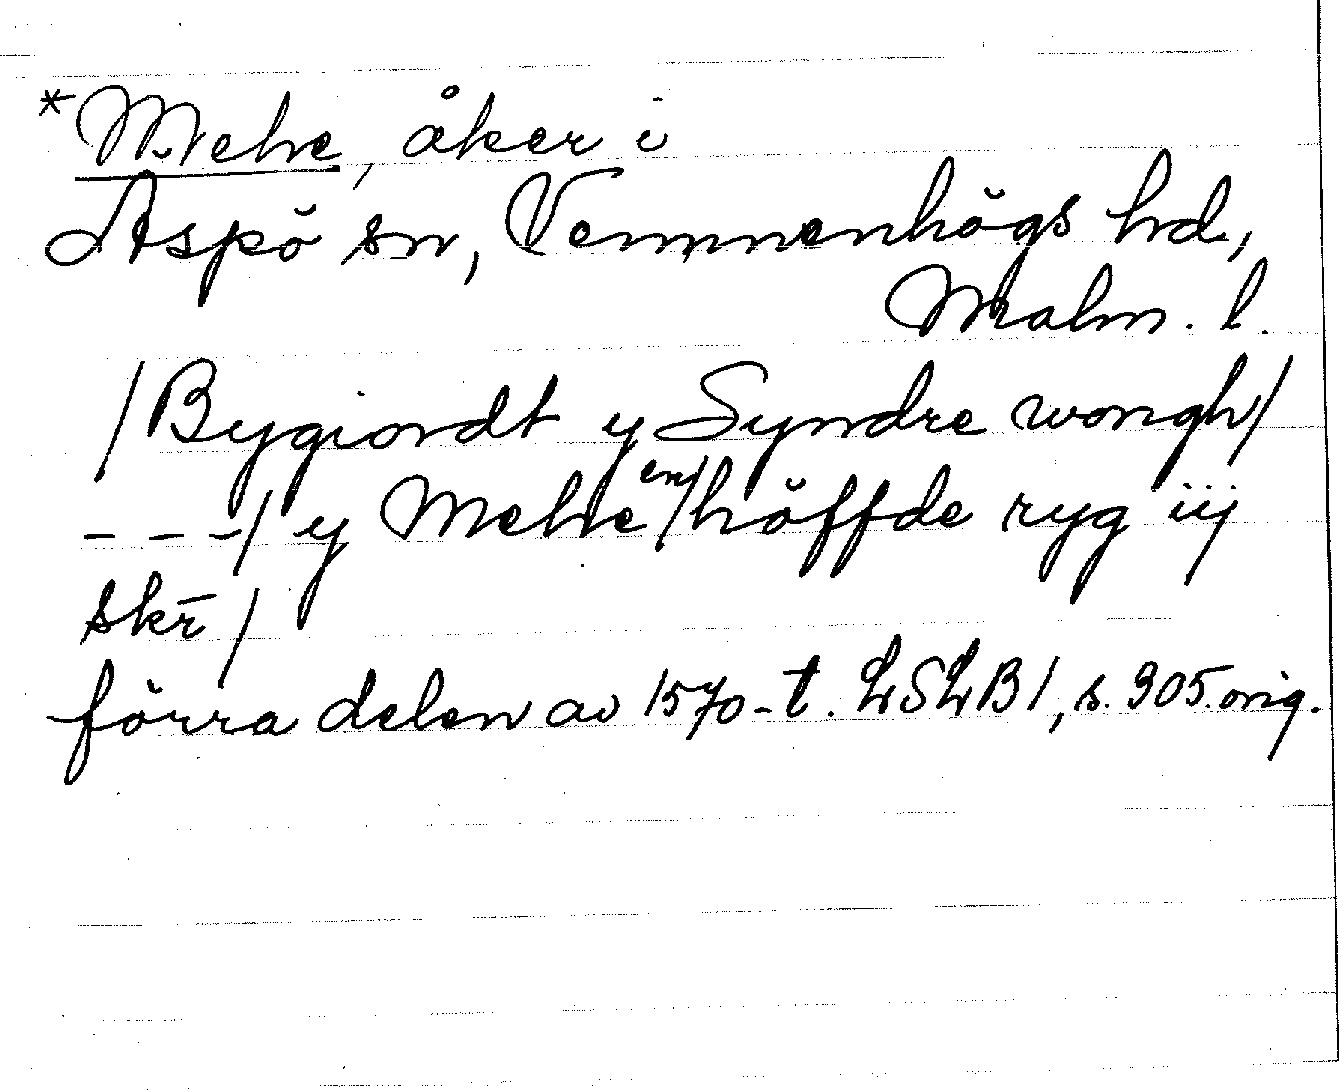 *Mehe, åker i
Aspö sn, Vemmenhögs hd,
Malm. l.
/Bygiordt y Syndre wongh/
- - -/ y Mehe en/höffde ryg iij
skr̄ /
förra delen av 1570-t. LSLB1, s. 305.orig.